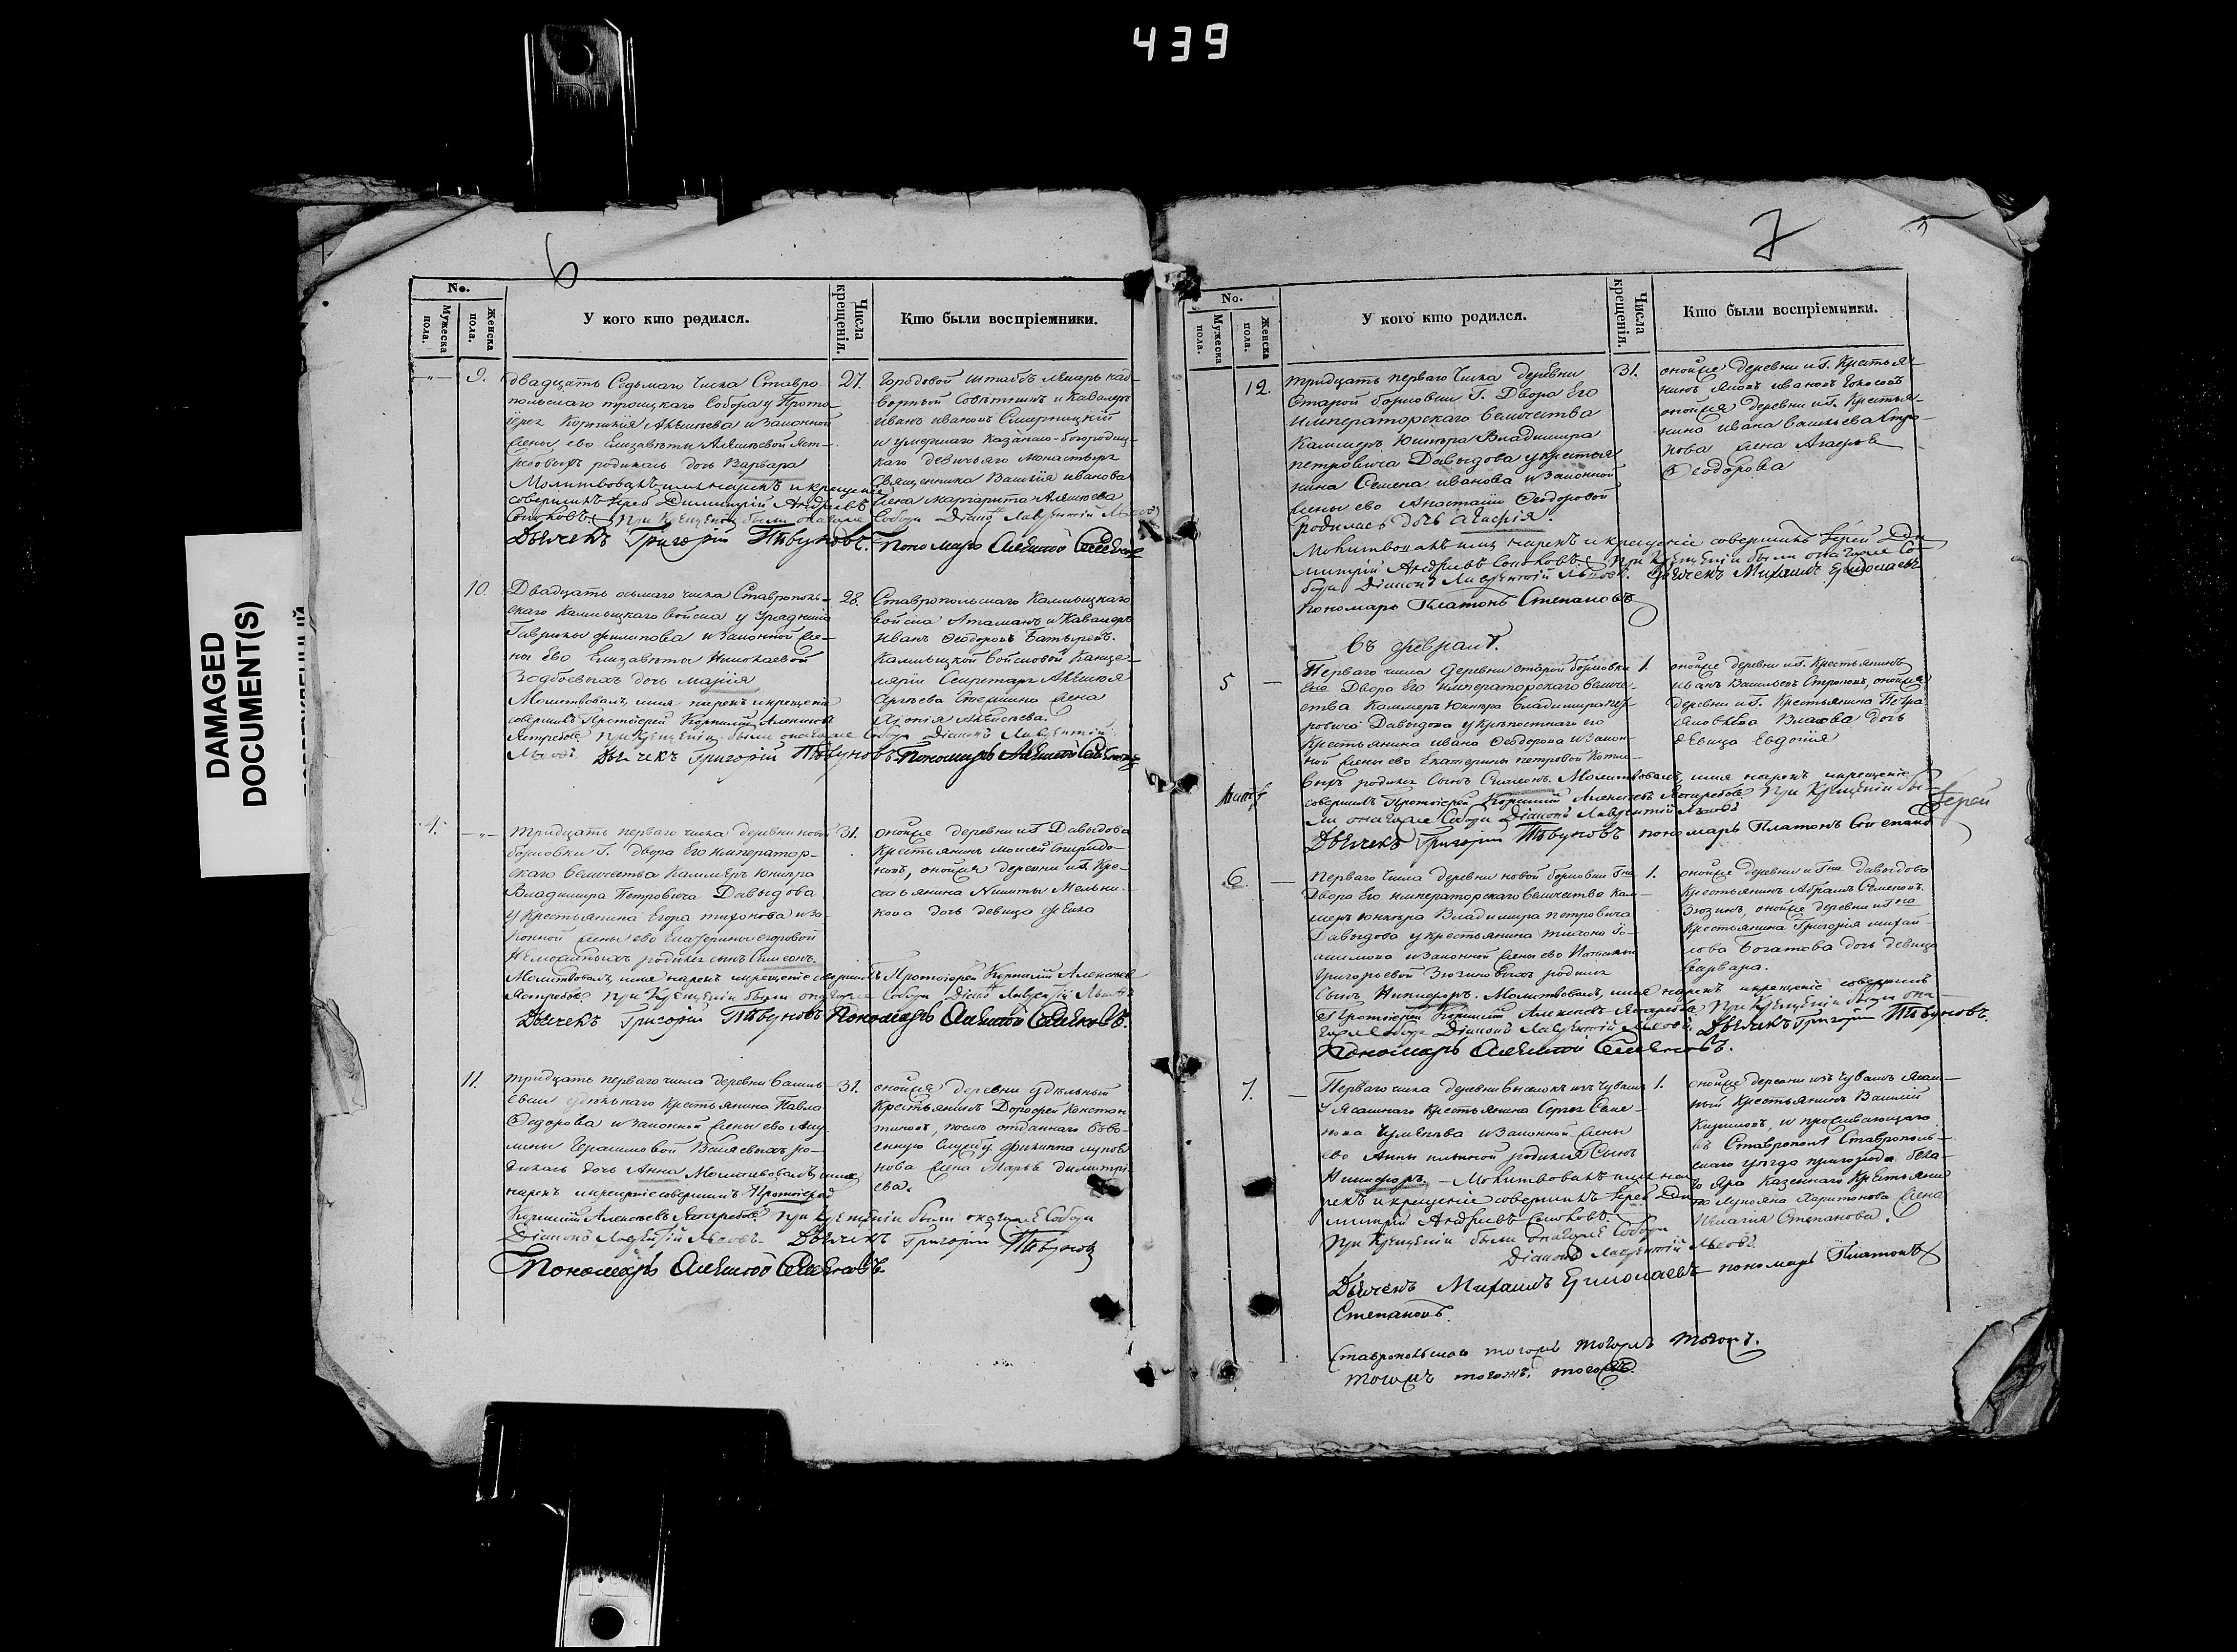 439
DAMAGED
DOCUMENT(S)
6
No.
Мужеска пола.
Женска пола.
У кого кто родился.
Числа крещенія.
Кто были воспріемники.
9.
двадцать Седьмаго числа Ставро-
польскаго троицкаго Собора у Прото-
іерея Корнилія Алексеева и законной
жены ево Елизаветы Алексеевой Яст-
ребовыхъ родилась дочь Варвара
Молитвовалъ имя нарекъ и крещеніе
совершилъ Іерей Димитрій Андреевъ
при крещеніи были онагоже
Дьячекъ Григорій Пѣвуновъ.
27.
Городовой штабъ лекарь над-
ворный Советникъ и Кавалеръ
иванъ ивановъ Смирницкій
и умершаго казанско-богородиц-
каго девичьяго монастыря
священника Василія иванова
жена маргарита Алексеева
Собора Діаконъ Лаврентій Львовъ
Пономарь Алексей Семеновъ
10.
Двадцать осьмаго числа Ставрополь-
скаго Калмыцкаго войска у Урядника
Гаврилы филипова и законной же-
ны Ево Елизаветы Николаевой
дочь марія
Молитвовалъ, имя нарекъ и крещеніе
совершилъ Протоіерей Корнилій Алексеевъ
Ястребовъ при крещеніи были онагоже Собора Діаконъ Лаврентій
Львовъ Дьячекъ Григорій Пѣвуновъ Пономарь Алексей Семеновъ
28.
Ставропольскаго Калмыцкаго
войска Атаманъ и Кавалеръ
иванъ Феодоровъ Батыревъ.
Калмыцкой войсковой Канце-
ляріи Секретаря Алексея
Сергеева жена
Алексеева.
4.
тридцать перваго числа деревни новой
борковки Г. двора Его император-
скаго величества Каммеръ юнкера
Владимира Петровича Давыдова
у крестьянина Егора тихонова и за-
конной жены ево Екатерины егоровой
родился сынъ Симеонъ.
Молитвовалъ, имя нарекъ и крещеніе совершилъ Протоіерей Корнилій Алексеевъ
Ястребовъ при крещеніи были онагоже Собора Діаконъ Лаврентій Львовъ
Дьячекъ Григорій Пѣвуновъ Пономарь Алексей Семеновъ.
31.
онойже деревни иГ Давыдова
Крестьянинъ моисей Спиридо-
новъ, онойже деревни иГ. Кре-
стьянина Никиты Мельни-
кова дочь девица фекла
11.
тридцать перваго числа деревни Василь-
евки удельнаго крестьянина Павла
Феодорова и законной жены ево Аку-
лины Герасимовой ро-
дилась дочь Анна Молитвовалъ, имя
нарекъ и крещеніе совершилъ Протоіерей
Корнилій Алексеевъ Ястребовъ при крещеніи были онагоже Собора
Діаконъ Лаврентій Львовъ. Дьячекъ Григорій Пѣвуновъ
Пономарь Алексей Семеновъ.
31.
онойже деревни удельный
Крестьянинъ Дорофей Констан-
тиновъ, после отданнаго въ во-
енную службу филиппа лукья-
нова жена Марья димитрі-
ева.
7
No.
Мужеска пола.
Женска пола.
У кого кто родился.
Числа крещенія.
Кто были воспріемники.
12.
тридцать перваго числа деревни
Старой борковки Г. Двора Его
императорскаго величества
Каммеръ Юнкера Владимира
петровича Давыдова у крестья-
нина Семена иванова и законной
жены ево Анастасіи Феодоровой
родилась дочь Агафія.
Молитвовалъ имя нарекъ и крещеніе совершилъ Іерей Ди-
митрій Андреевъ при крещеніи были онагоже Со-
бора Діаконъ Лаврентій Львовъ. Дьячекъ Михаилъ Ермолаевъ
пономарь Платонъ Степановъ
31.
онойже деревни иГ. Крестья-
нинъ Яковъ ивановъ
онойже деревни иГ. Крестья-
нина ивана васильева Стро-
нова жена
Феодорова
въ февралѣ.
5
Перваго числа деревни старой борковки
Двора Его императорскаго величе-
ства Каммеръ Юнкера Владимира пет-
ровича Давыдова у крепостнаго его
крестьянина ивана Феодорова и закон-
ной жены ево Екатерины петровой
родился сынъ Симеонъ. Молитвовалъ, имя нарекъ и крещеніе
совершилъ Протоіерей Корнилій Алексеевъ Ястребовъ при крещеніи бы-
ли онагоже Собора Діаконъ Лаврентій Львовъ
Дьячекъ Григорій Пѣвуновъ пономарь Платонъ Степано
Іерей
1.
онойже деревни иГ. Крестьянинъ
иванъ Васильевъ Строновъ, онойже
деревни иГ. Крестьянина Петра
Яковлева Власова дочь
девица Евдокія
6.
перваго числа деревни новой борковки Гна
Двора Его императорскаго величества Кам-
меръ юнкера Владимира петровича
Давыдова у крестьянина
и законной жены ево Наталіи
григорьевой Зюзиновыхъ родился
сынъ Никифоръ. Молитвовалъ, имя нарекъ и крещеніе совершилъ
Протоіерей Корнилій Алексеевъ Ястребовъ При Крещеніи были она-
гоже Собора Діаконъ Лаврентій Львовъ. Дьячекъ Григорій Пѣвуновъ.
Пономарь Алексей Семеновъ.
1.
онойже деревни иГна давыдова
Крестьянинъ Абрамъ Семеновъ
Зюзинъ, онойже деревни иГна
Крестьянина Григорія михай-
лова Богатова дочь девица
варвара.
7.
Перваго числа деревни выселокъ изъ чувашъ
у Ясашнаго крестьянина Сергея Семе-
нова и законной жены
ево Анны ильиной родился Сынъ
Никифоръ – Молитвовалъ имя на-
рекъ и крещеніе совершилъ Іерей Ди-
митрій Андреевъ
при Крещеніи были онагоже Собора
Діаконъ Лаврентій Львовъ.
Дьячекъ Михаилъ Ермолаевъ пономарь Платонъ
Степановъ.
1.
онойже деревни изъ чувашъ Ясаш-
ный Крестьянинъ Василій
и проживающаго
въ Ставрополѣ Ставрополь-
скаго уезда пригорода бела-
го Яра Казеннаго Крестьяни-
на лукьяна Харитонова жена
Пелагія Степанова.